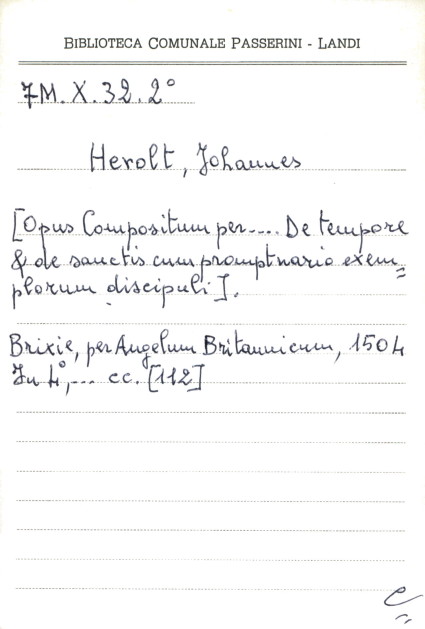 BIBLIOTECA COMUNALE PASSERINI - LANDI
7M. X. 32. 2°
Herolt, Johannes
[Opus Compositum per.... De tempore
& de sanctis cum promptnario exem=
plorum discipuli].
Brixie, per Angelum Britannicum, 1504
In 4°,... cc. [112]